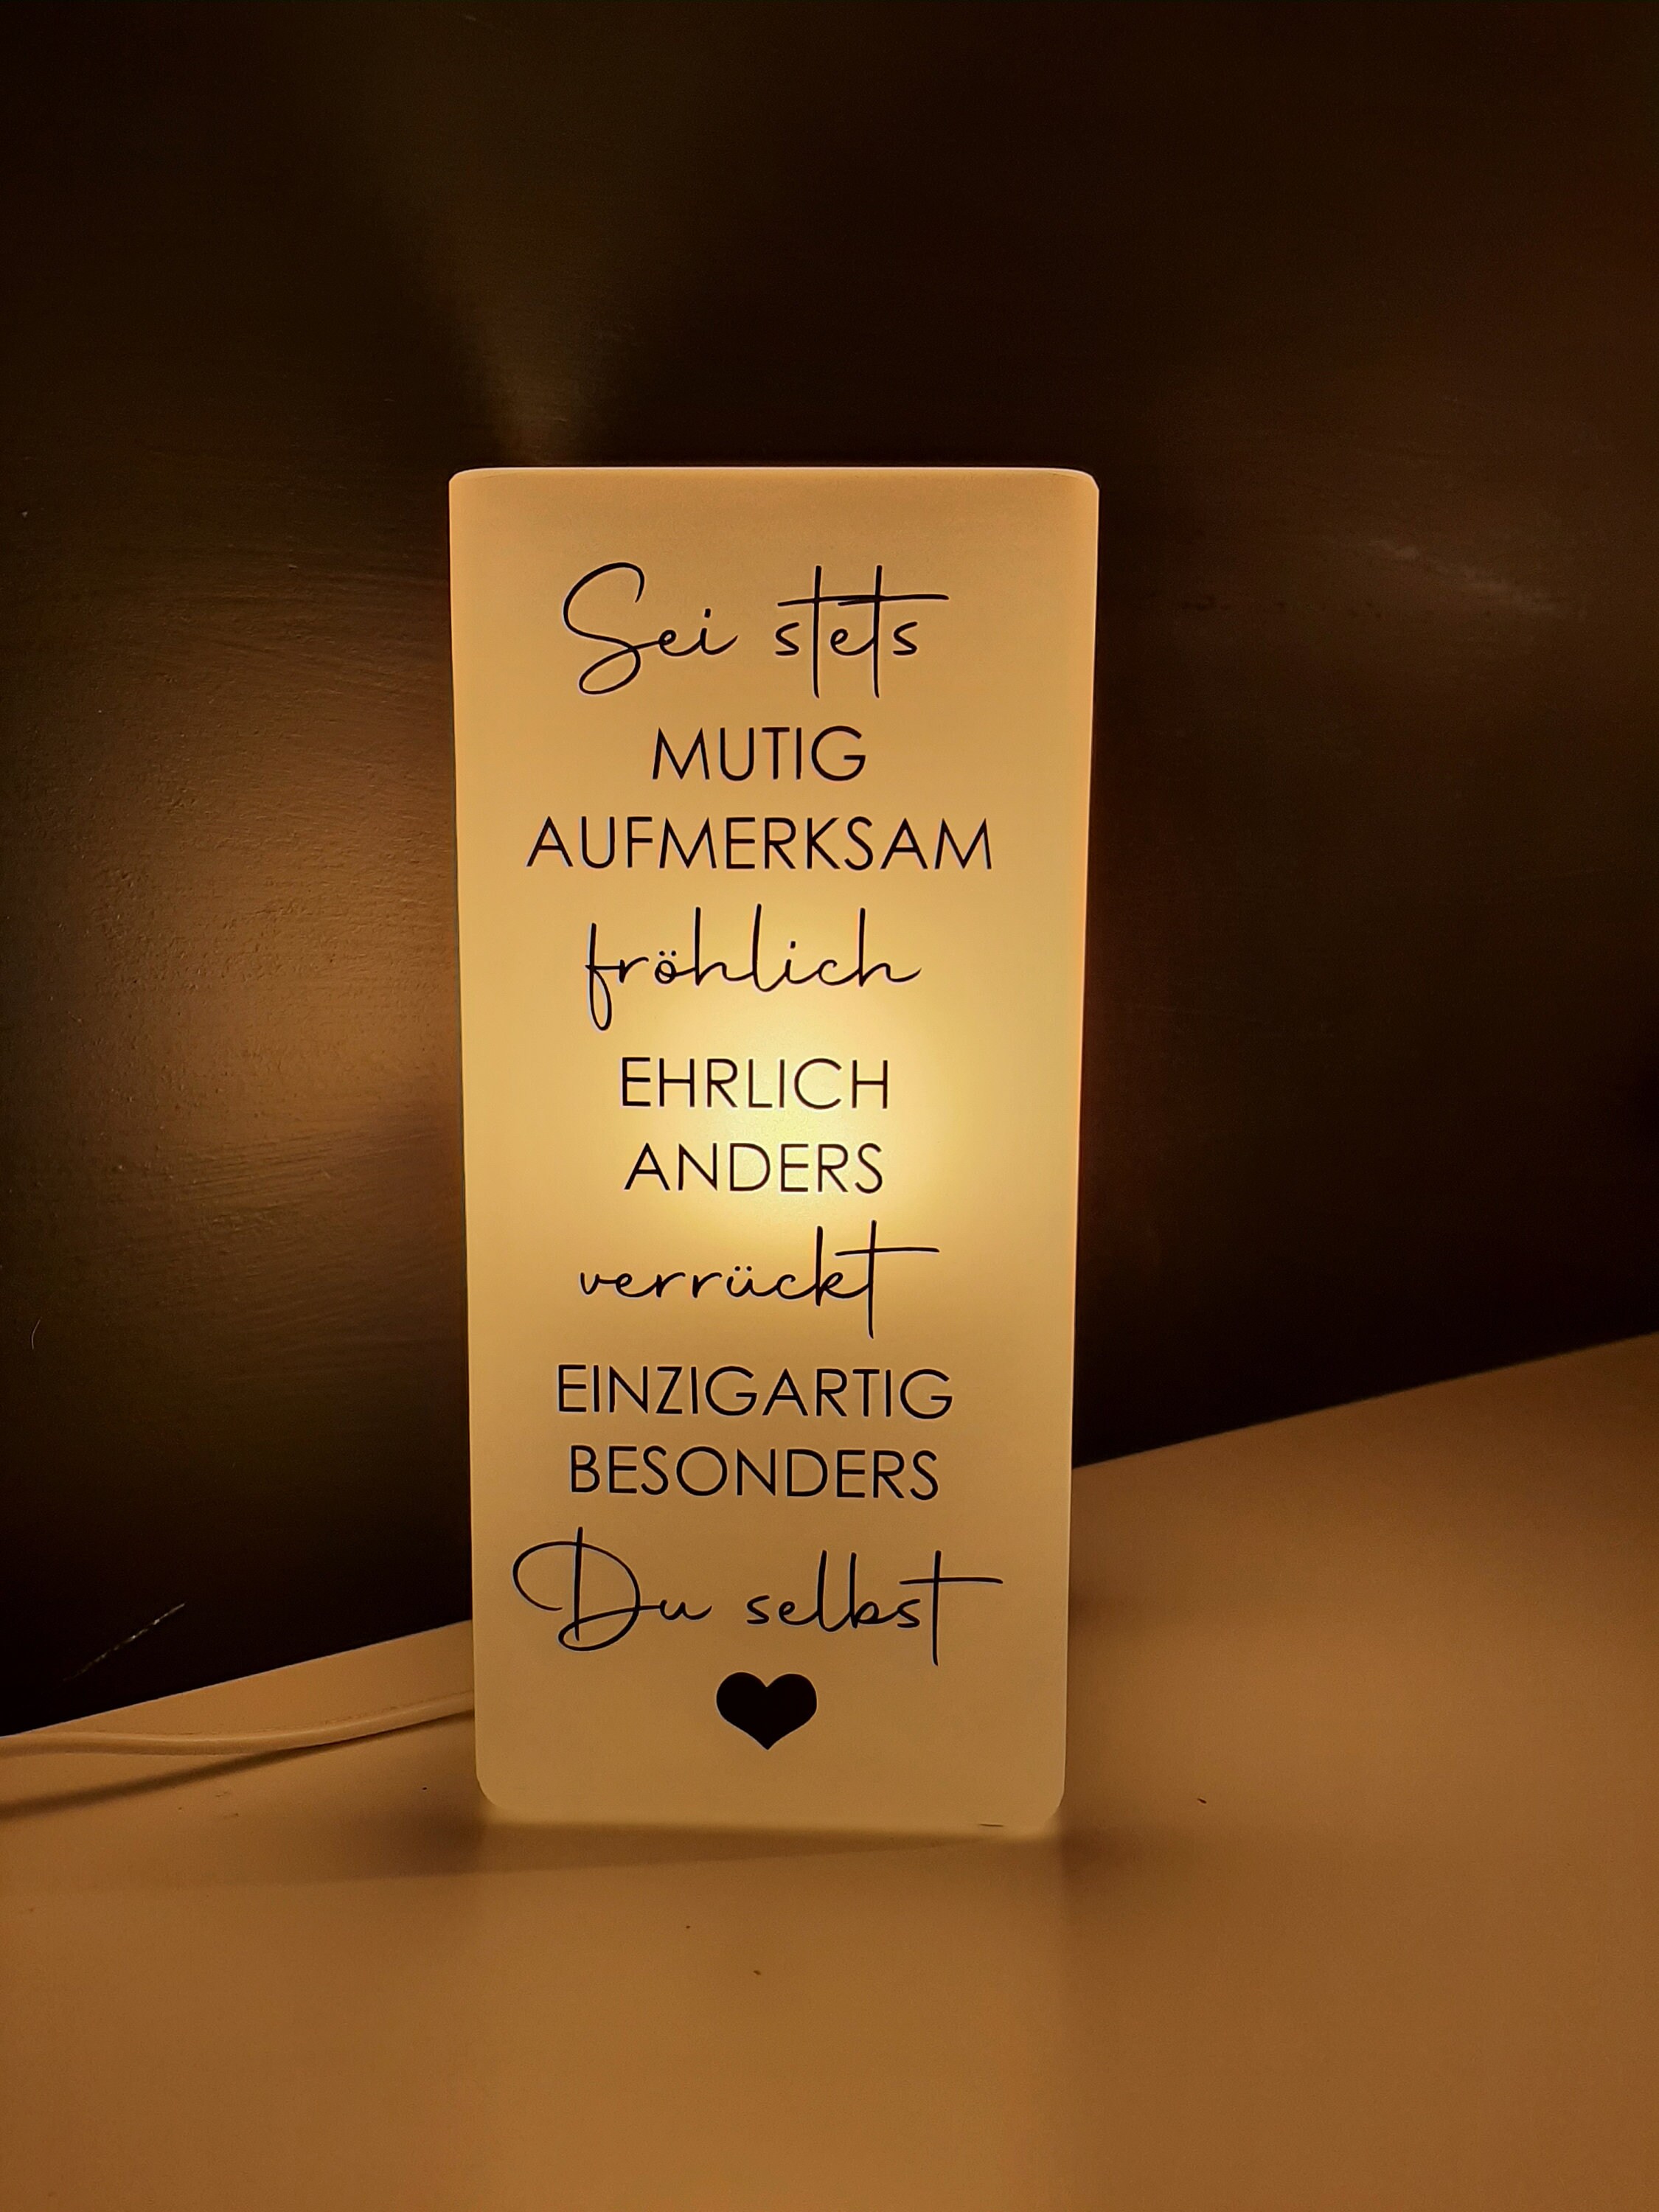 Sei stets
MUTIG
AUFMERKSAM
fröhlich
EHRLICH
ANDERS
verrückt
EINZIGARTIG
BESONDERS
Du selbst